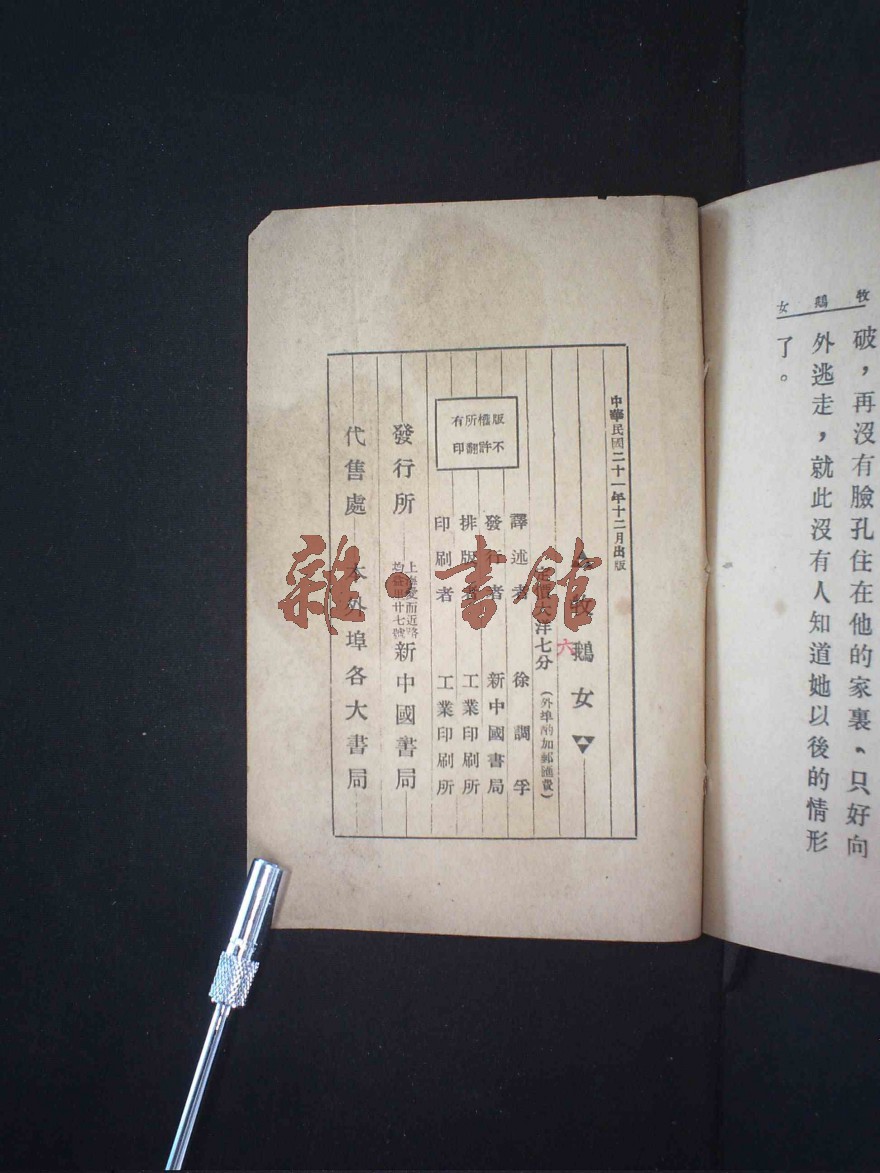 牧鵝女
破，再沒有臉孔住在他的家裏、只好向
外逃走，就此沒有人知道她以後的情形
了。
中華民國二十一年十二月出版
牧鵝女
六
定價大洋七分
（外埠酌加郵匯費）
譯述者 徐調孚
發行者 新中國書局
排版者 工業印刷所
印刷者 工業印刷所
版權所有
不許翻印
發行所 上海愛而近路
均益里廿七號 新中國書局
代售處 本外埠各大書局
雜·書館